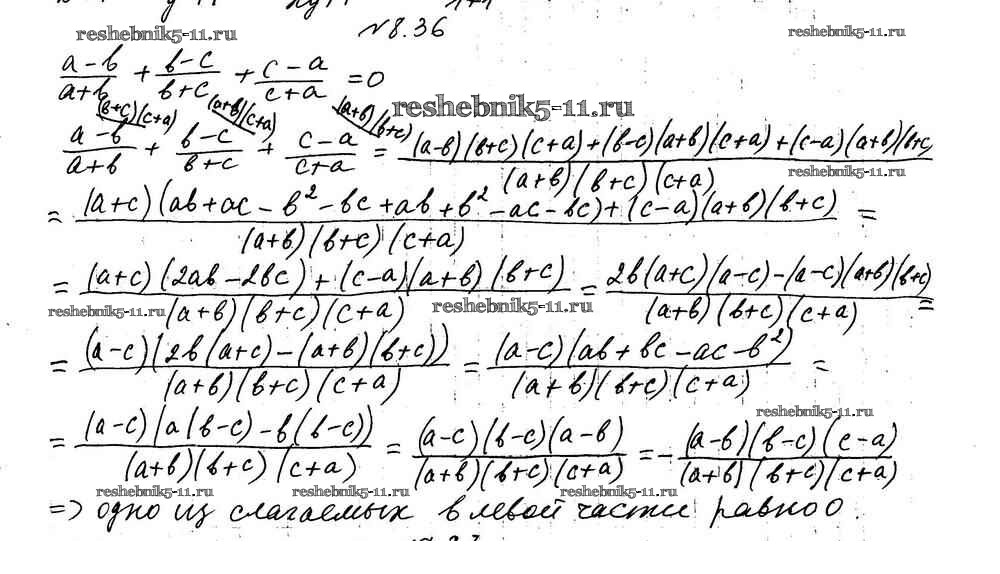 reshebnik5-11.ru
№8.36
reshebnik5-11.ru
(a-в)/(a+в) + (в-c)/(в+c) + (c-a)/(c+a) = 0
reshebnik5-11.ru
(в+c)(c+a) (a+в)(c+a) (a+в)(в+c)
(a-в)/(a+в) + (в-c)/(в+c) + (c-a)/(c+a) = ((a-в)(в+c)(c+a)+(в-c)(a+в)(c+a)+(c-a)(a+в)(в+c))/((a+в)(в+c)(c+a))
reshebnik5-11.ru
= ((a+c)(aв+ac-в²-вc+aв+в²-ac-вc)+(c-a)(a+в)(в+c))/((a+в)(в+c)(c+a)) =
= ((a+c)(2aв-2вc)+(c-a)(a+в)(в+c))/((a+в)(в+c)(c+a)) = (2в(a+c)(a-c)-(a-c)(a+в)(в+c))/((a+в)(в+c)(c+a)) =
reshebnik5-11.ru
reshebnik5-11.ru
= ((a-c)(2в(a+c)-(a+в)(в+c)))/((a+в)(в+c)(c+a)) = ((a-c)(aв+вc-ac-в²))/((a+в)(в+c)(c+a)) =
reshebnik5-11.ru
= ((a-c)(a(в-c)-в(в-c)))/((a+в)(в+c)(c+a)) = ((a-c)(в-c)(a-в))/((a+в)(в+c)(c+a)) = -((a-в)(в-c)(c-a))/((a+в)(в+c)(c+a))
reshebnik5-11.ru
reshebnik5-11.ru
reshebnik5-11.ru
=> одно из слагаемых в левой части равно 0.